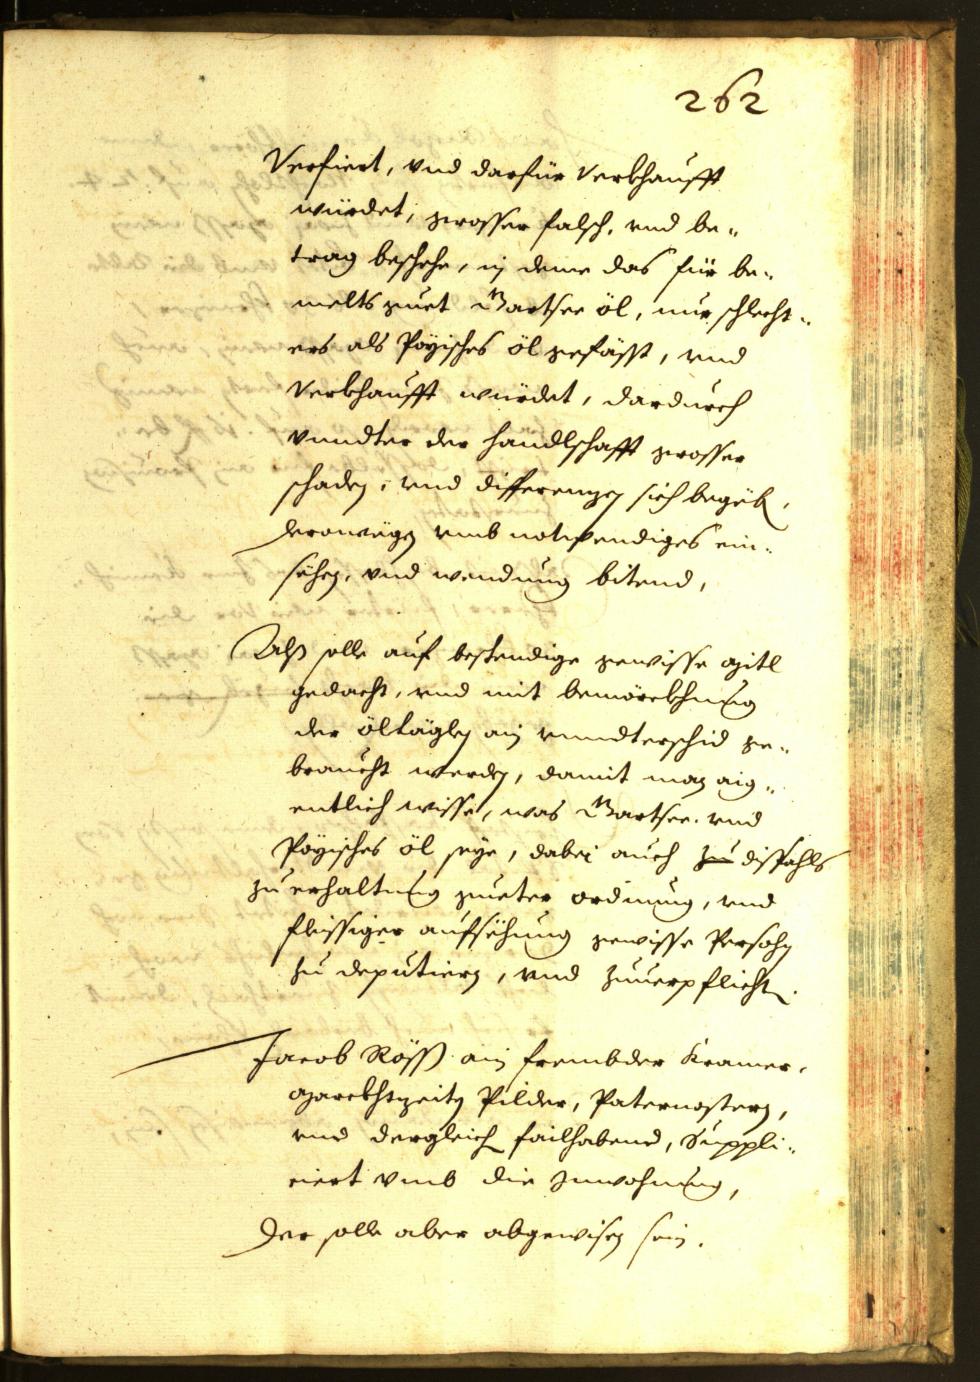 262
Verfiert, vnd darfür Verkhaufft
würdet, grosser falsch, vnd be„
trag beschehe, in deme das für be„
melts guet Gartsee öl, nur schlecht„
ers als Poÿisches öl gefasst, vnd
Verkhaufft würdet, dardurch
vnndter der handlschafft grosser
schaden, vnd differenzen sich begäb,
derowegen vmb notwendiges ein„
sehen, vnd wendung bitend,
Alß solle auf bestendige gewisse mitl
gedacht, vnd mit bemörckhnung
der öllägln ain vnndterschid ge„
braucht werden, damit man aig„
entlich wisse, was Gartsee. vnd
Poÿisches öl seye, dabei auch zu disfahls
zu erhaltung gueter ordnung, vnd
fleissiger aufsehung gewisse Persohn
zu deputiern, vnd zuuerpflicht.
Jacob Röss ain frembder Kramer,
marckhtzeitn Pilder, Paternostern,
vnd dergleich failhabend, Suppli„
ciert vmb die Inwohnung,
Der solle aber abgewisen sein.